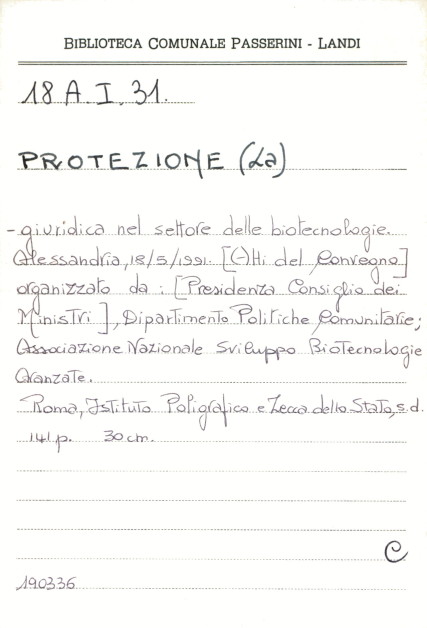 BIBLIOTECA COMUNALE PASSERINI - LANDI
18 A. I. 31.
PROTEZIONE (La)
- giuridica nel settore delle biotecnologie.
Alessandria, 18/5/1991. [Atti del Convegno]
organizzato da: [Presidenza Consiglio dei
Ministri], Dipartimento Politiche Comunitarie;
Associazione Nazionale Sviluppo Biotecnologie
Avanzate.
Roma, Istituto Poligrafico e Zecca dello Stato, s.d.
141 p. 30 cm.
C
190336